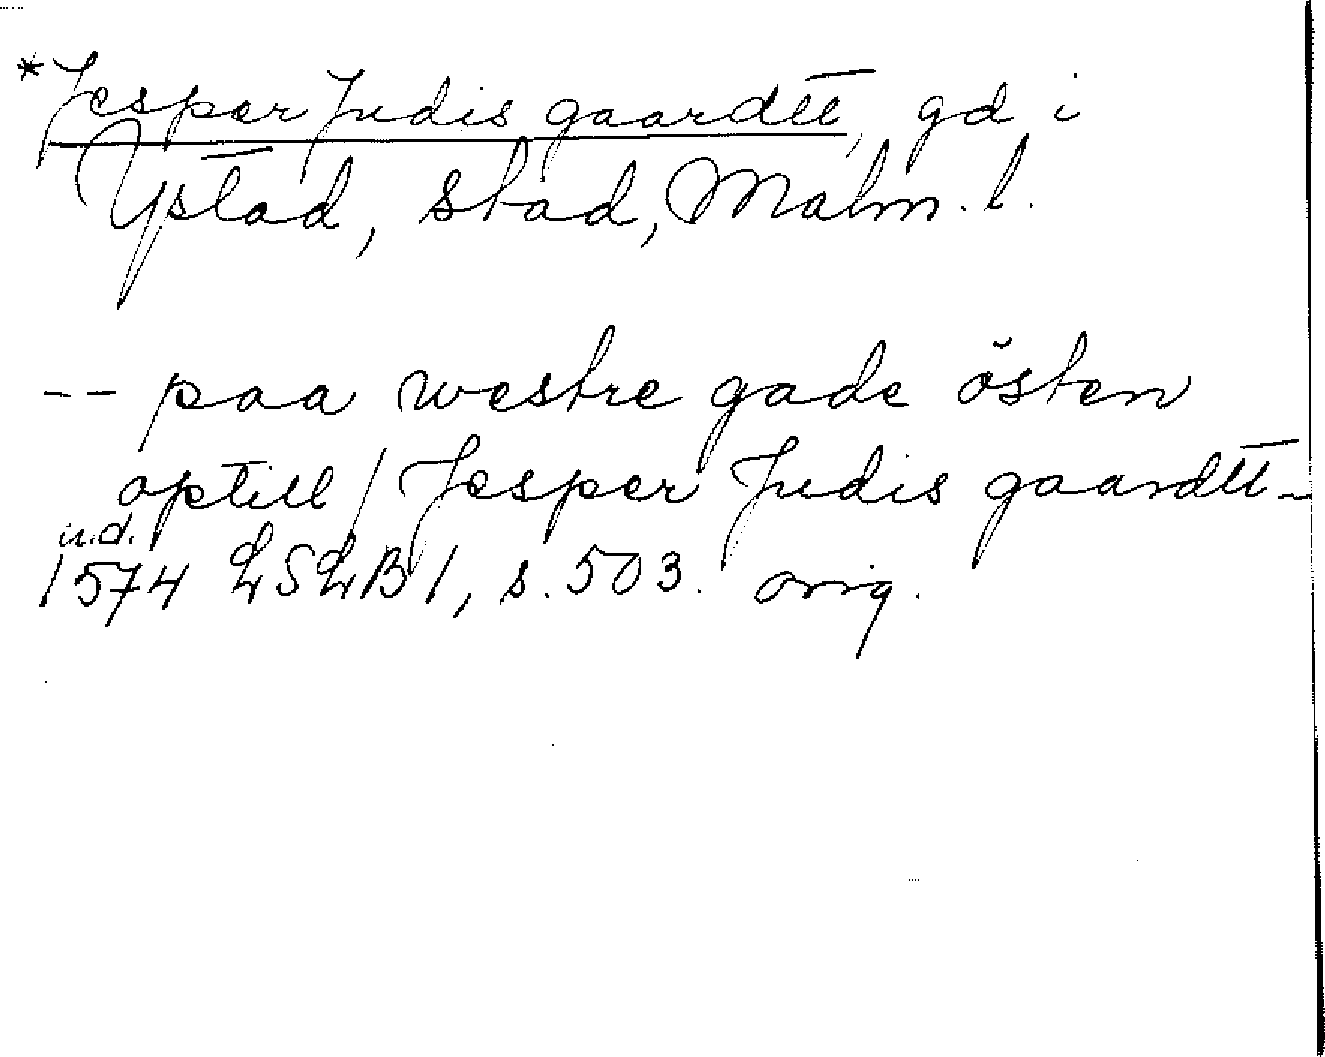 *Jesper Judis gaardtt, gd i
Ystad, stad, Malm. l.
-- paa westre gade östen
optill / Jesper Judis gaardtt -
u.d.
1574 LSLB 1, s. 503. orig.